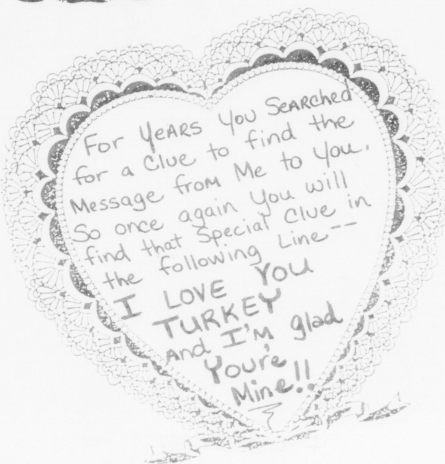 For YeARS You SeARched
for a Clue to find the
Message from Me to You.
So once again You will
find that Special Clue in
the following Line--
I LOVE YOU
TURKEY
And I'M glad
You're
Mine!!